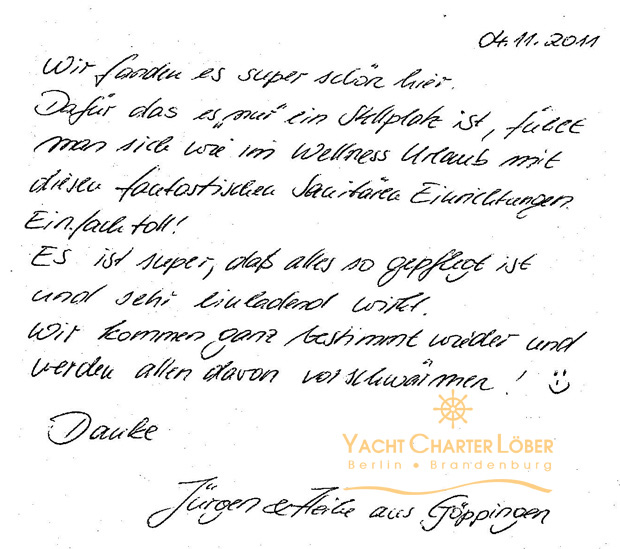 04.11.2011
Wir fanden es super schön hier.
Dafür das es „nur" ein Stellplatz ist, fühlt
man sich wie im Wellness Urlaub mit
diesen fantastischen Sanitären Einrichtungen.
Einfach toll!
Es ist super, daß alles so gepflegt ist
und sehr einladend wirkt.
Wir kommen ganz bestimmt wieder und
werden allen davon vorschwärmen! :)
Danke
YACHT CHARTER LÖBER
Berlin • Brandenburg
Jürgen & Heike aus Göppingen